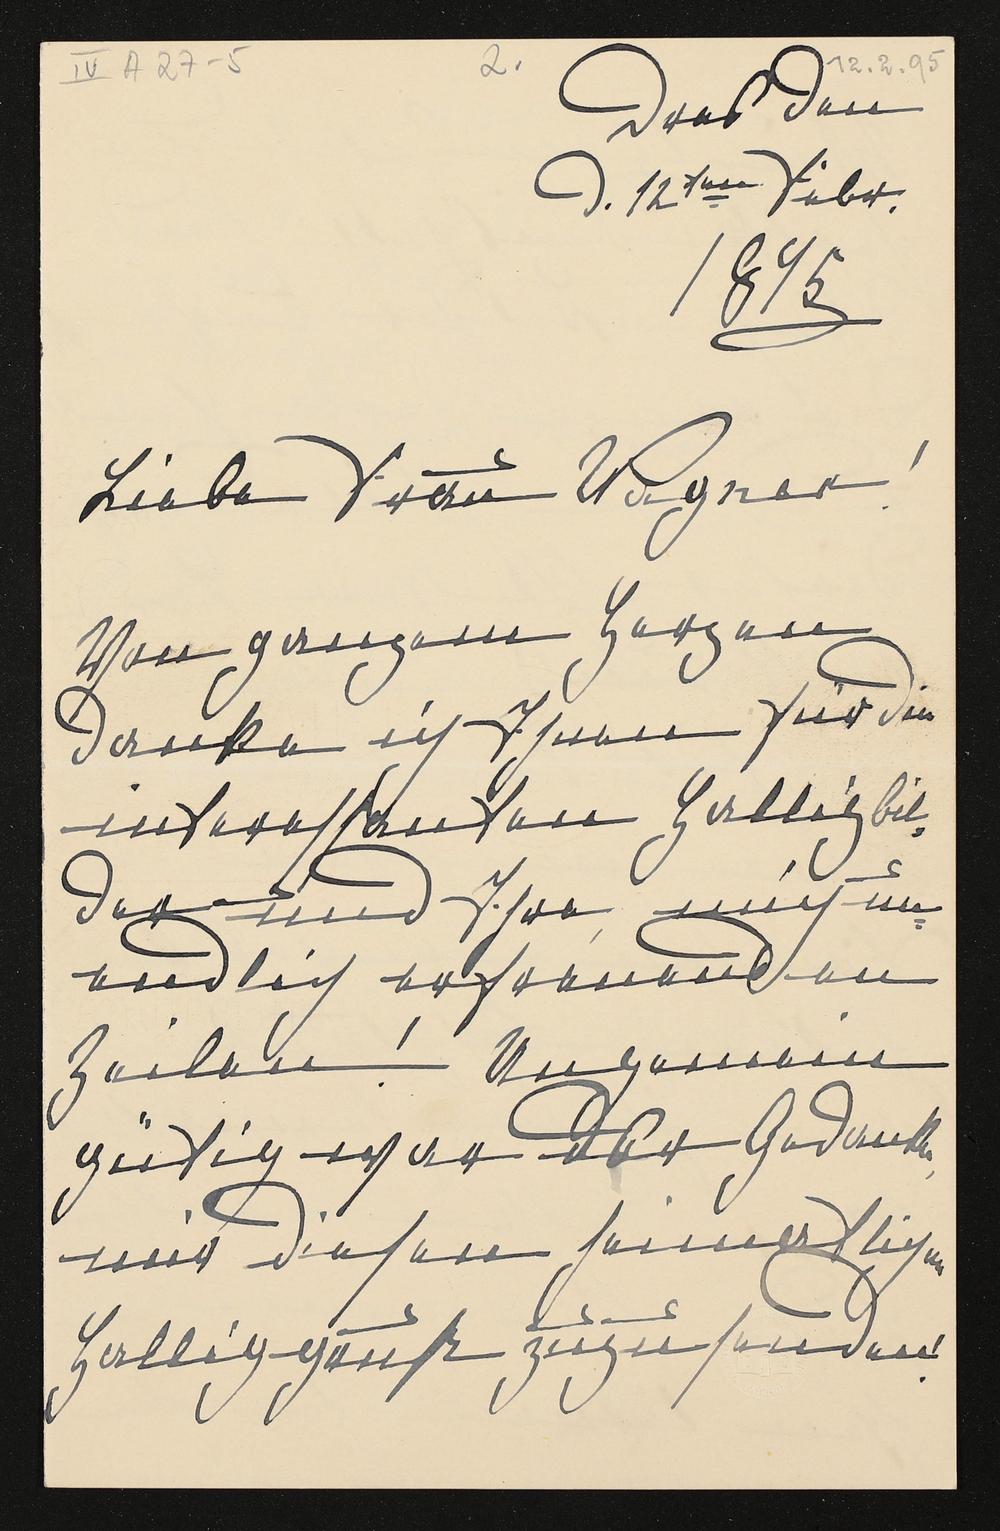 IV A 27-5 2. 12.2.95
Dresden
D. 12ten Febr.
1895
Liebe Frau Wagner!
Von ganzem Herzen
danke ich Ihnen für die
interessanten Halligbil-
der und Ihre, mich un-
endlich erfreuenden
Zeilen! Ungemein
gütig war der Gedanke,
mir diesen heimatlichen
Halliggruß zuzusenden!